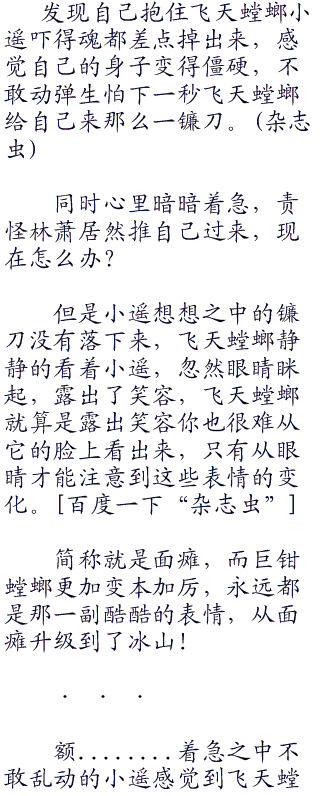 发现自己抱住飞天螳螂小
遥吓得魂都差点掉出来，感
觉自己的身子变得僵硬，不
敢动弹生怕下一秒飞天螳螂
给自己来那么一镰刀。(杂志
虫)
同时心里暗暗着急，责
怪林萧居然推自己过来，现
在怎么办？
但是小遥想想之中的镰
刀没有落下来，飞天螳螂静
静的看着小遥，忽然眼睛眯
起，露出了笑容，飞天螳螂
就算是露出笑容你也很难从
它的脸上看出来，只有从眼
睛才能注意到这些表情的变
化。[百度一下“杂志虫”]
简称就是面瘫，而巨钳
螳螂更加变本加厉，永远都
是那一副酷酷的表情，从面
瘫升级到了冰山！
. . .
额........着急之中不
敢乱动的小遥感觉到飞天螳